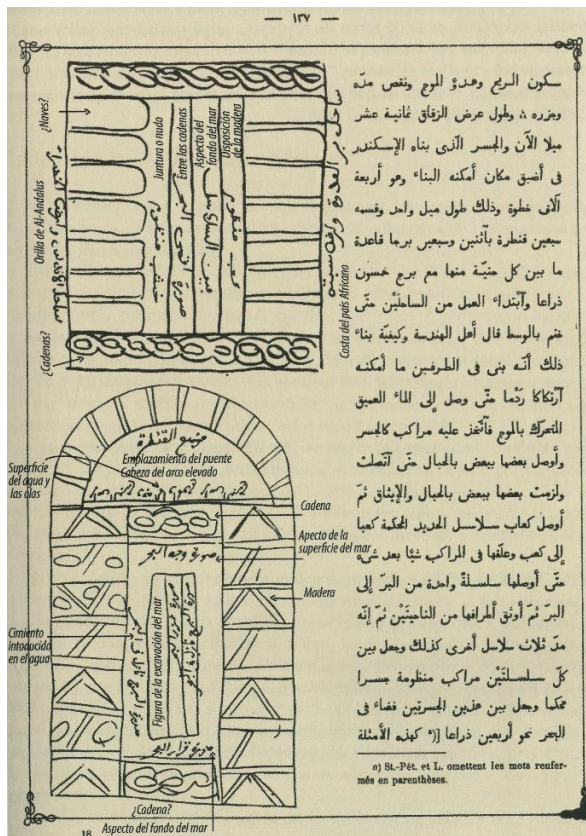 — ١٣٧ —
سكون الريح وهدوّ الموج ونقص مدّه
وجزره ، وطول عرض الزقاق ثمانية عشر
ميلا الآن والجسر الذى بناه الإسكندر
فى أضيق مكان أمكنه البناء وهو أربعة
آلاف خطوة وذلك طول ميل واحد وقسمه
سبعين قنطرة بآثنين وسبعين برجا قاعدة
ما بين كل حنيّة منها مع برج خمسون
ذراعا وآبتداء العمل من الساحلَيْن حتّى
ختم بالوسط قال أهل الهندسة وكيفيّة بناء
ذلك أنّه بنى فى الطرفين ما أمكنه
آرتكاكا رَدْما حتّى وصل إلى الماء العميق
المتحرّك بالموج فآتّخذ عليه مراكب كالجسر
وأوصل بعضها ببعض بالحبال حتّى آتّصلت
ولزمت بعضها ببعض بالحبال والإيثاق ثمّ
أوصل كعاب سلاسل الحديد المحكمة كعبا
إلى كعب وعلّقها فى المراكب شيًا بعد شىء
حتّى أوصلها سلسلةً واحدة من البرّ إلى
البرّ ثمّ أوثق أطرافها من الناحيتَيْن ثمّ إنّه
مدّ ثلاث سلاسل أخرى كذلك وجعل بين
كلّ سلسلتَيْن مراكب منظومة جسرا
محكما وجعل بين هذين الجسرين فضاء فى
البحر نحو أربعين ذراعا [(a كهذه الأمثلة
a) St.-Pét. et L. omettent les mots renfer-
més en parenthèses.
18
¿Naves?
Orilla de Al-Andalus
¿Cadenas?
Juntura o nudo
Entre las cadenas
Aspecto del
fondo del mar
Disposición
de la madera
Costa del país Africano
موضع القنطرة
Emplazamiento del puente
Cabeza del arco elevado
Superficie
del agua y
las olas
Cadena
Apecto de la
superficie del mar
صورة وجه البحر
Madera
Cimiento
intoducido
en el agua
Figura de la excavación del mar
صورة قرار البحر
¿Cadena?
Aspecto del fondo del mar